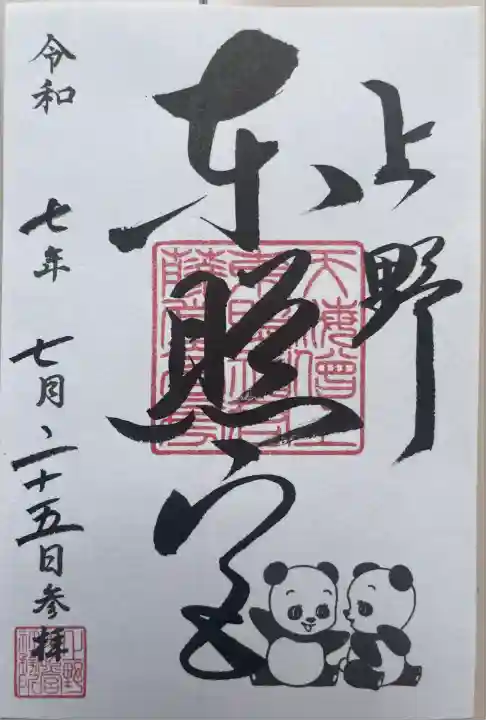 上野
東照宮
令和 七年 七月二十五日参拝